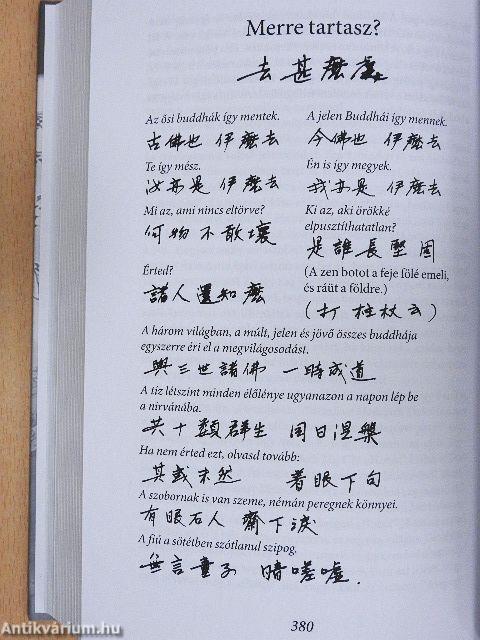 Merre tartasz?
去甚麼處
Az ősi buddhák így mentek.
A jelen Buddhái így mennek.
古佛也 伊麼去
今佛也 伊麼去
Te így mész.
Én is így megyek.
汝亦是 伊麼去
我亦是 伊麼去
Mi az, ami nincs eltörve?
Ki az, aki örökké
elpusztíthatatlan?
何物不敢壞
是誰長堅固
Érted?
(A zen botot a feje fölé emeli,
és ráüt a földre.)
諸人還知麼
(打柱杖云)
A három világban, a múlt, jelen és jövő összes buddhája
egyszerre éri el a megvilágosodást.
與三世諸佛 一時成道
A tíz létszint minden élőlénye ugyanazon a napon lép be
a nirvánába.
共十類群生 同日涅槃
Ha nem érted ezt, olvasd tovább:
其或未然 着眼下句
A szobornak is van szeme, némán peregnek könnyei.
有眼石人 齋下淚
A fiú a sötétben szótlanul szipog.
無言童子 暗嗟噓.
380
Antikvárium.hu